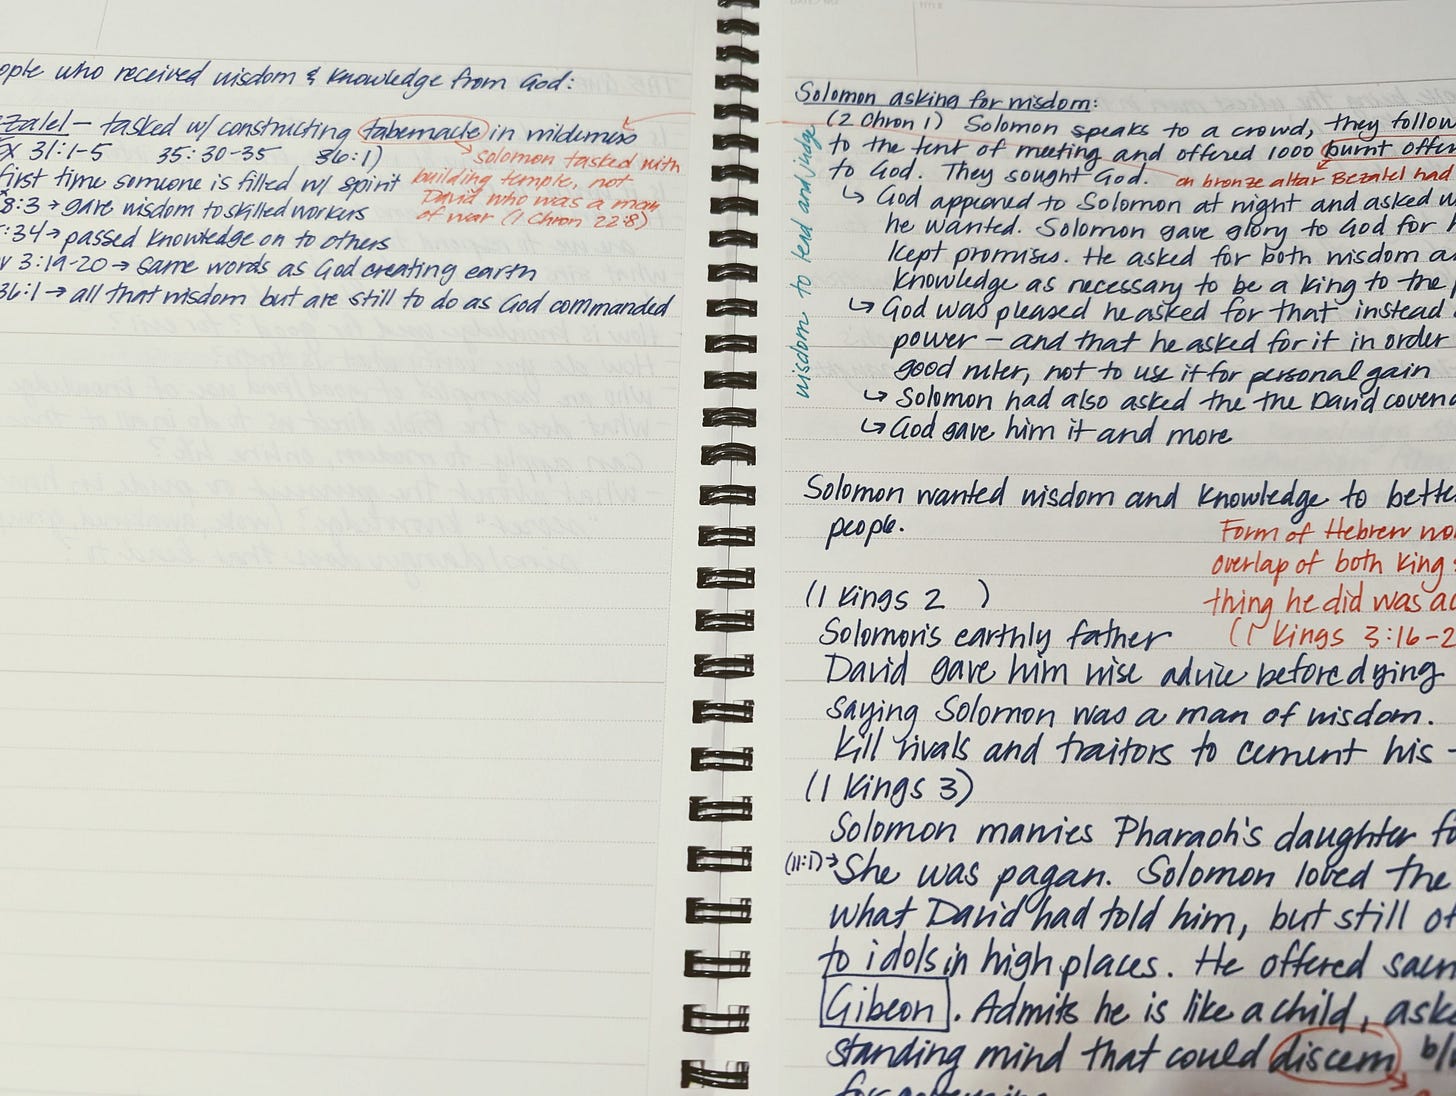 ople who received wisdom & knowledge from God:
zalel — tasked w/ constructing tabernacle in wilderness
Ex 31:1-5 35:30-35 36:1)
first time someone is filled w/ spirit
8:3 → gave wisdom to skilled workers
:34 → passed knowledge on to others
v 3:19-20 → same words as God creating earth
36:1 → all that wisdom but are still to do as God commanded
solomon tasked with
building temple, not
David who was a man
of war (1 Chron 22:8)
Solomon asking for wisdom:
(2 Chron 1) Solomon speaks to a crowd, they follow
to the tent of meeting and offered 1000 burnt offer
to God. They sought God.
on bronze altar Bezalel had
↳ God appeared to Solomon at night and asked w
he wanted. Solomon gave glory to God for h
kept promises. He asked for both wisdom a
knowledge as necessary to be a king to the p
↳ God was pleased he asked for that instead
power – and that he asked for it in order
good ruler, not to use it for personal gain
↳ Solomon had also asked the the David coven
↳ God gave him it and more
wisdom to lead and judge
Solomon wanted wisdom and knowledge to bette
people.
Form of Hebrew wo
overlap of both king
thing he did was a
(1 Kings 3:16-2
(1 Kings 2 )
Solomon's earthly father
David gave him wise advice before dying
saying Solomon was a man of wisdom.
kill rivals and traitors to cement his -
(1 Kings 3)
Solomon marries Pharaoh's daughter fo
(11:1)→ She was pagan. Solomon loved the
what David had told him, but still of
to idols in high places. He offered sacri
Gibeon. Admits he is like a child, aske
standing mind that could discern b/
for governing